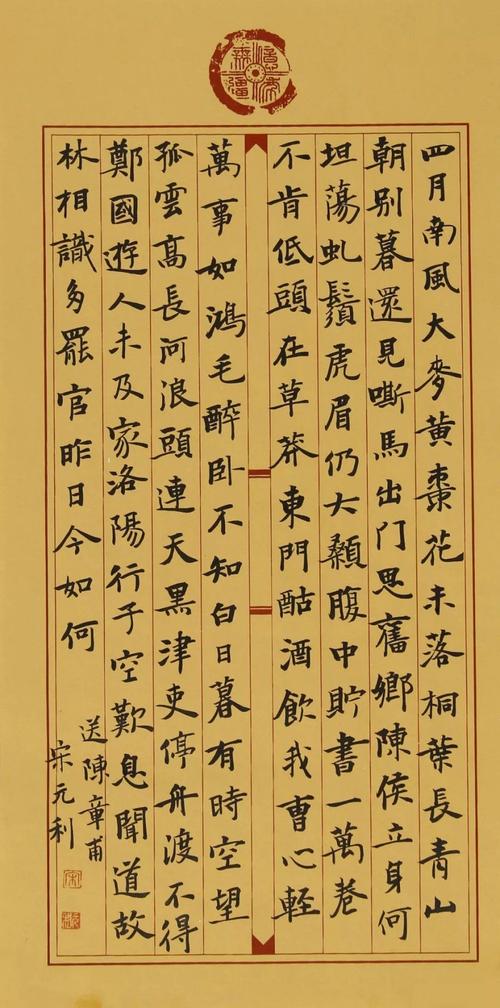 四月南風大麥黄棗花未落桐葉長青山
朝别暮還見嘶馬出門思舊鄉陳侯立身何
坦蕩虬鬚虎眉仍大顙腹中貯書一萬卷
不肯低頭在草莽東門酤酒飲我曹心輕
萬事如鴻毛醉卧不知白日暮有時空望
孤雲高長河浪頭連天黑津吏停舟渡不得
鄭國遊人未及家洛陽行子空歎息聞道故
林相識多罷官昨日今如何
送陳章甫
宋元利